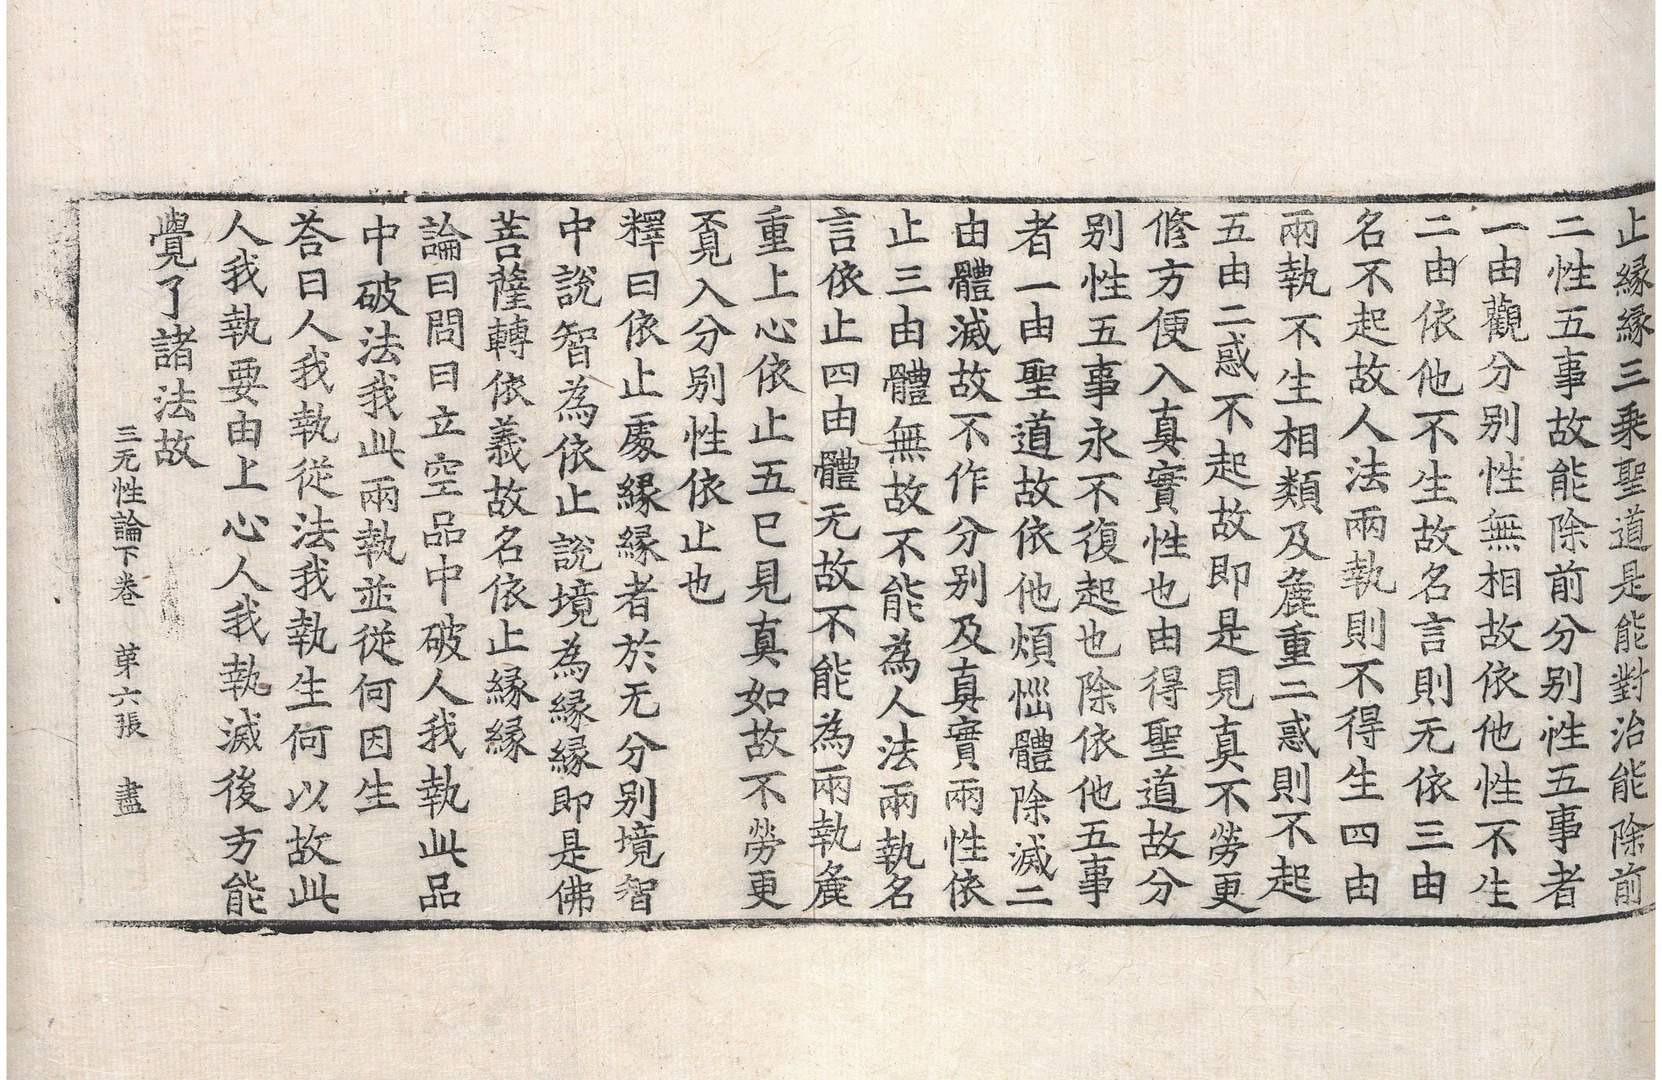 止緣緣三乘聖道是能對治能除前
二性五事故能除前分別性五事者
一由觀分別性無相故依他性不生
二由依他不生故名言則无依三由
名不起故人法兩執則不得生四由
兩執不生相類及麁重二惑則不起
五由二惑不起故即是見真不勞更
修方便入真實性也由得聖道故分
別性五事永不復起也除依他五事
者一由聖道故依他煩惱體除滅二
由體滅故不作分別及真實兩性依
止三由體無故不能為人法兩執名
言依止四由體无故不能為兩執麁
重上心依止五已見真如故不勞更
覔入分別性依止也
釋曰依止處緣緣者於无分別境智
中說智為依止說境為緣緣即是佛
菩薩轉依義故名依止緣緣
論曰問曰立空品中破人我執此品
中破法我此兩執並從何因生
荅曰人我執從法我執生何以故此
人我執要由上心人我執滅後方能
覺了諸法故
三无性論下卷 苐六張 盡